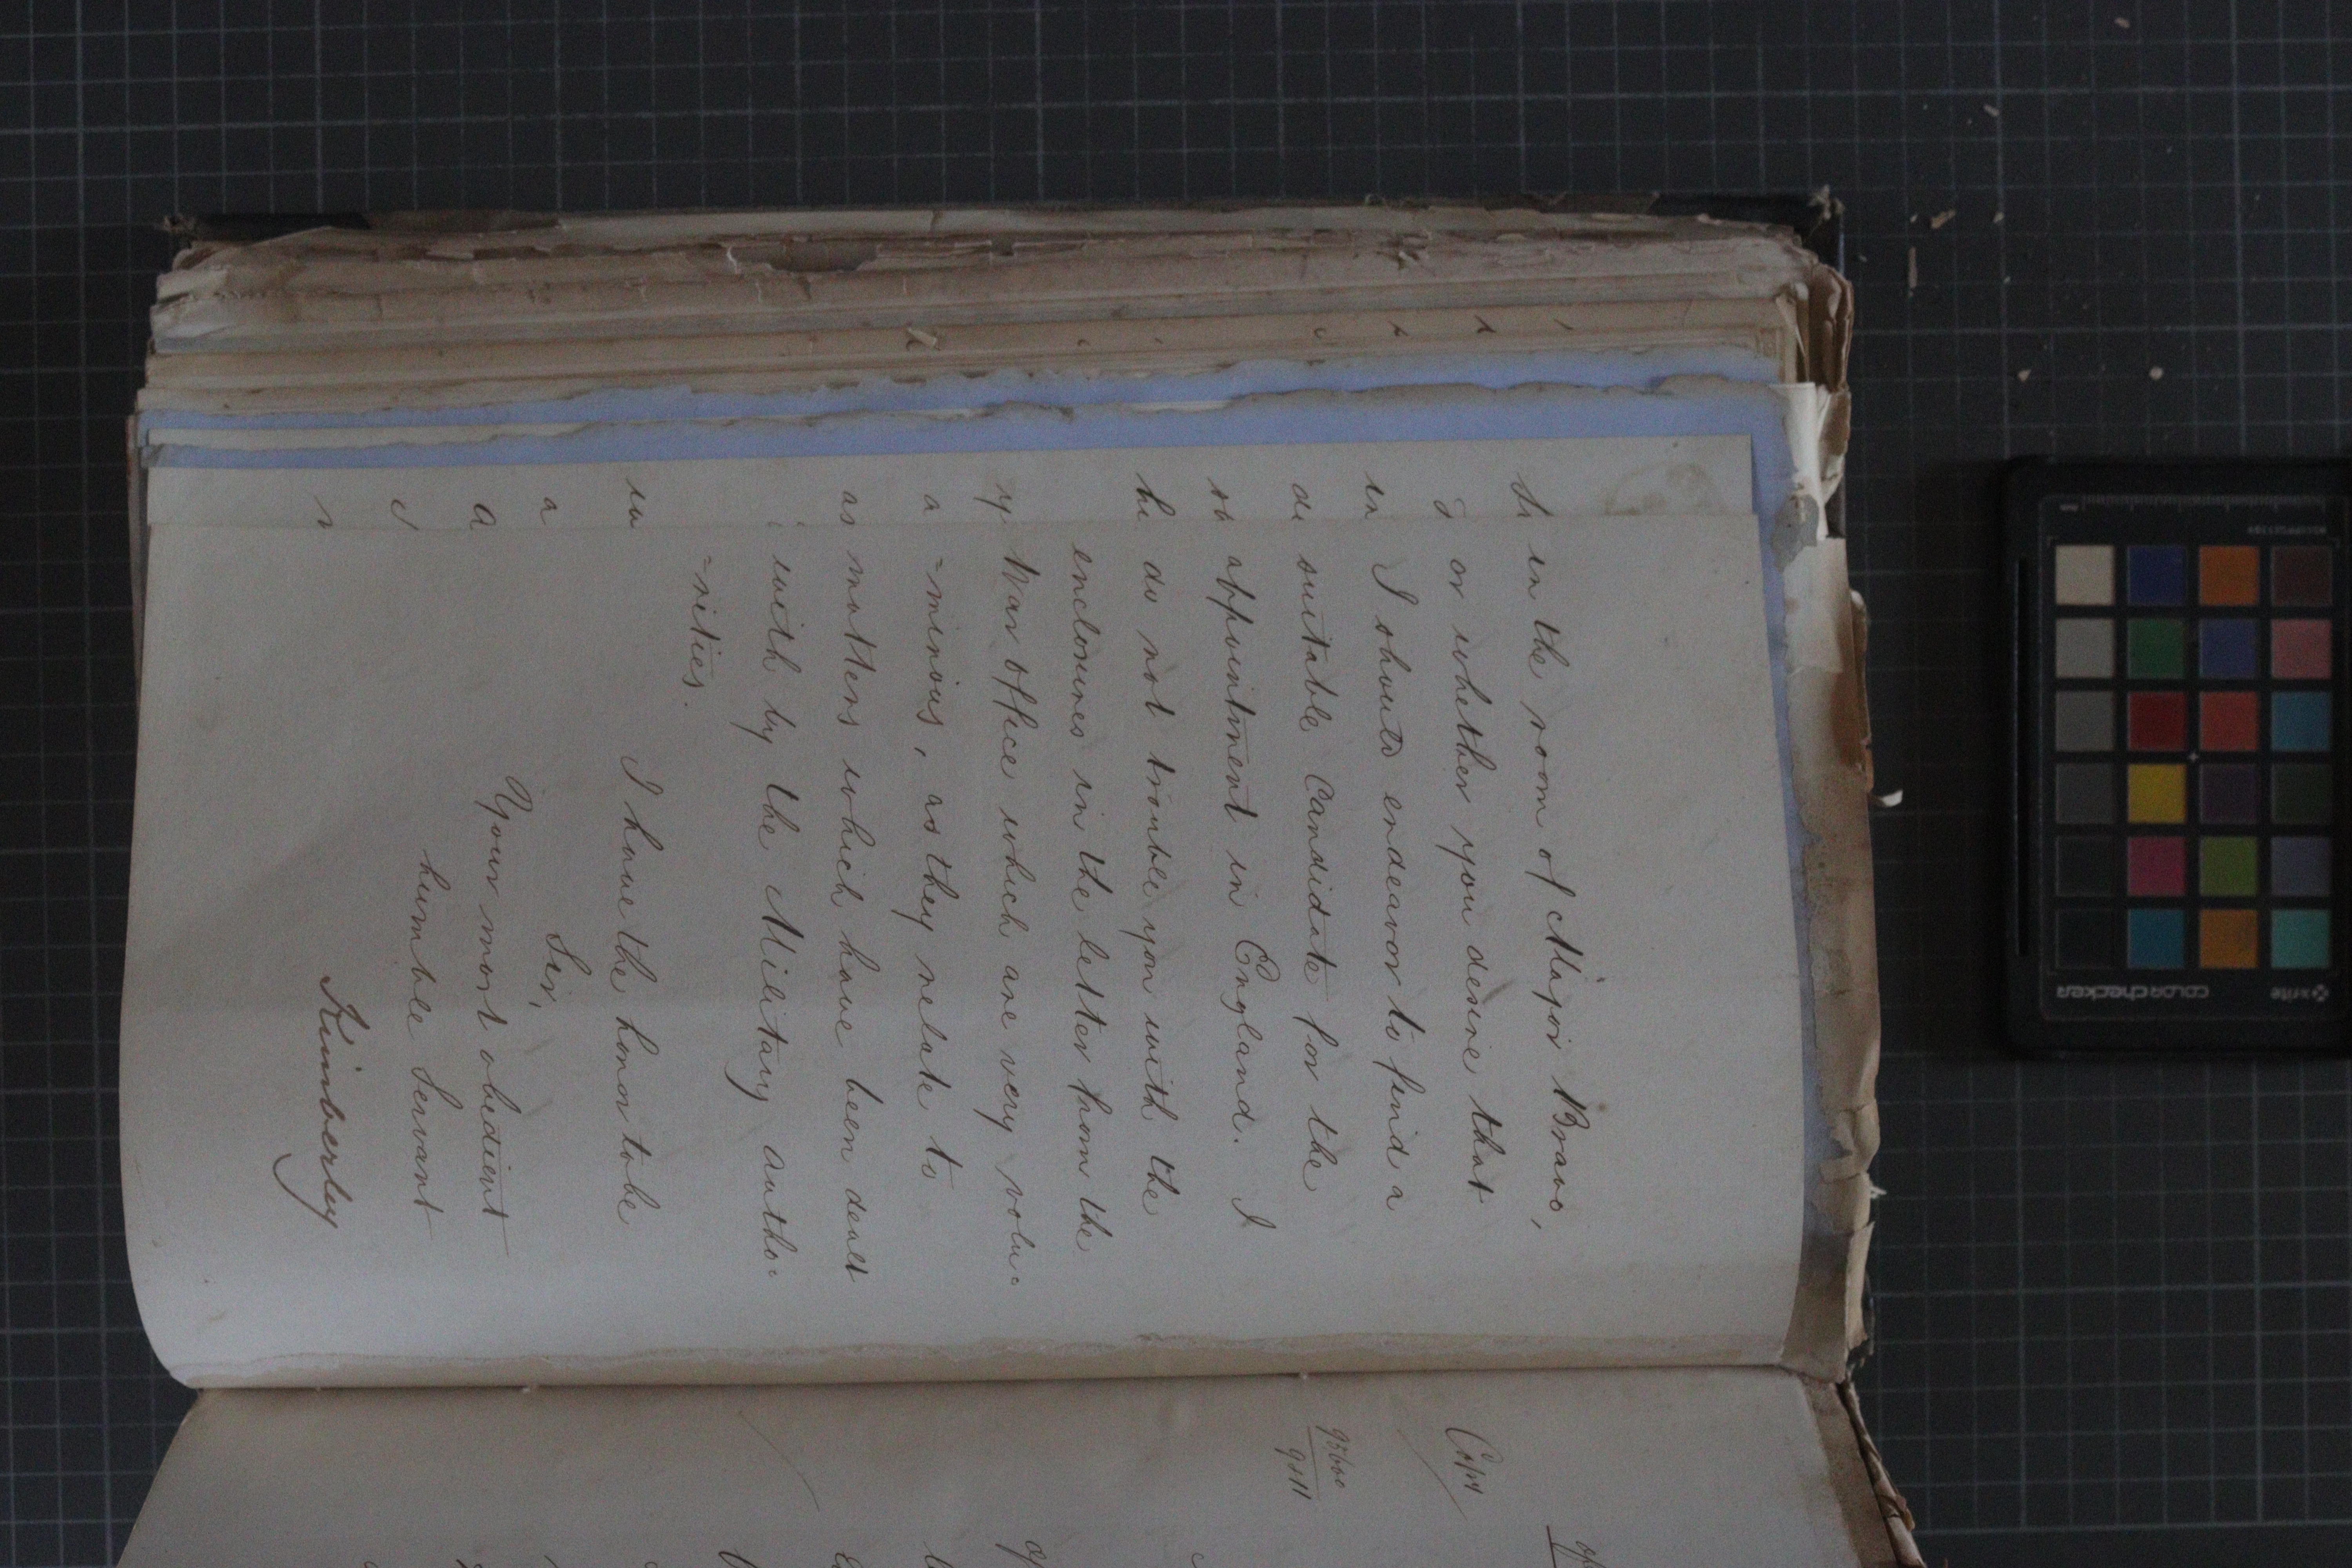 in the room of Major Bravo,
or whether you desire that
I should endeavor to find a
suitable Candidate for the
appointment in England. I
do not trouble you with the
enclosures in the letter from the
War Office which are very volu-
-minous, as they relate to
matters which have been dealt
with by the Military autho-
-rities.
I have the honor to be
Sir,
Your most obedient
humble Servant
Kimberley
Copy
colorchecker
x-rite